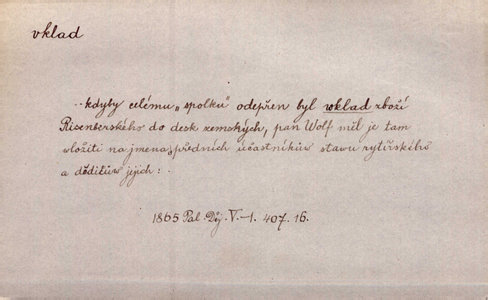 vklad
..kdyby celému „spolku" odepřen byl vklad zboží
Risenberského do desk zemských, pan Wolf měl je tam
vložiti na jmena předních účastníkův stavu rytířského
a dědicův jejich:
1865 Pal. Děj. V.-1. 407. 16.